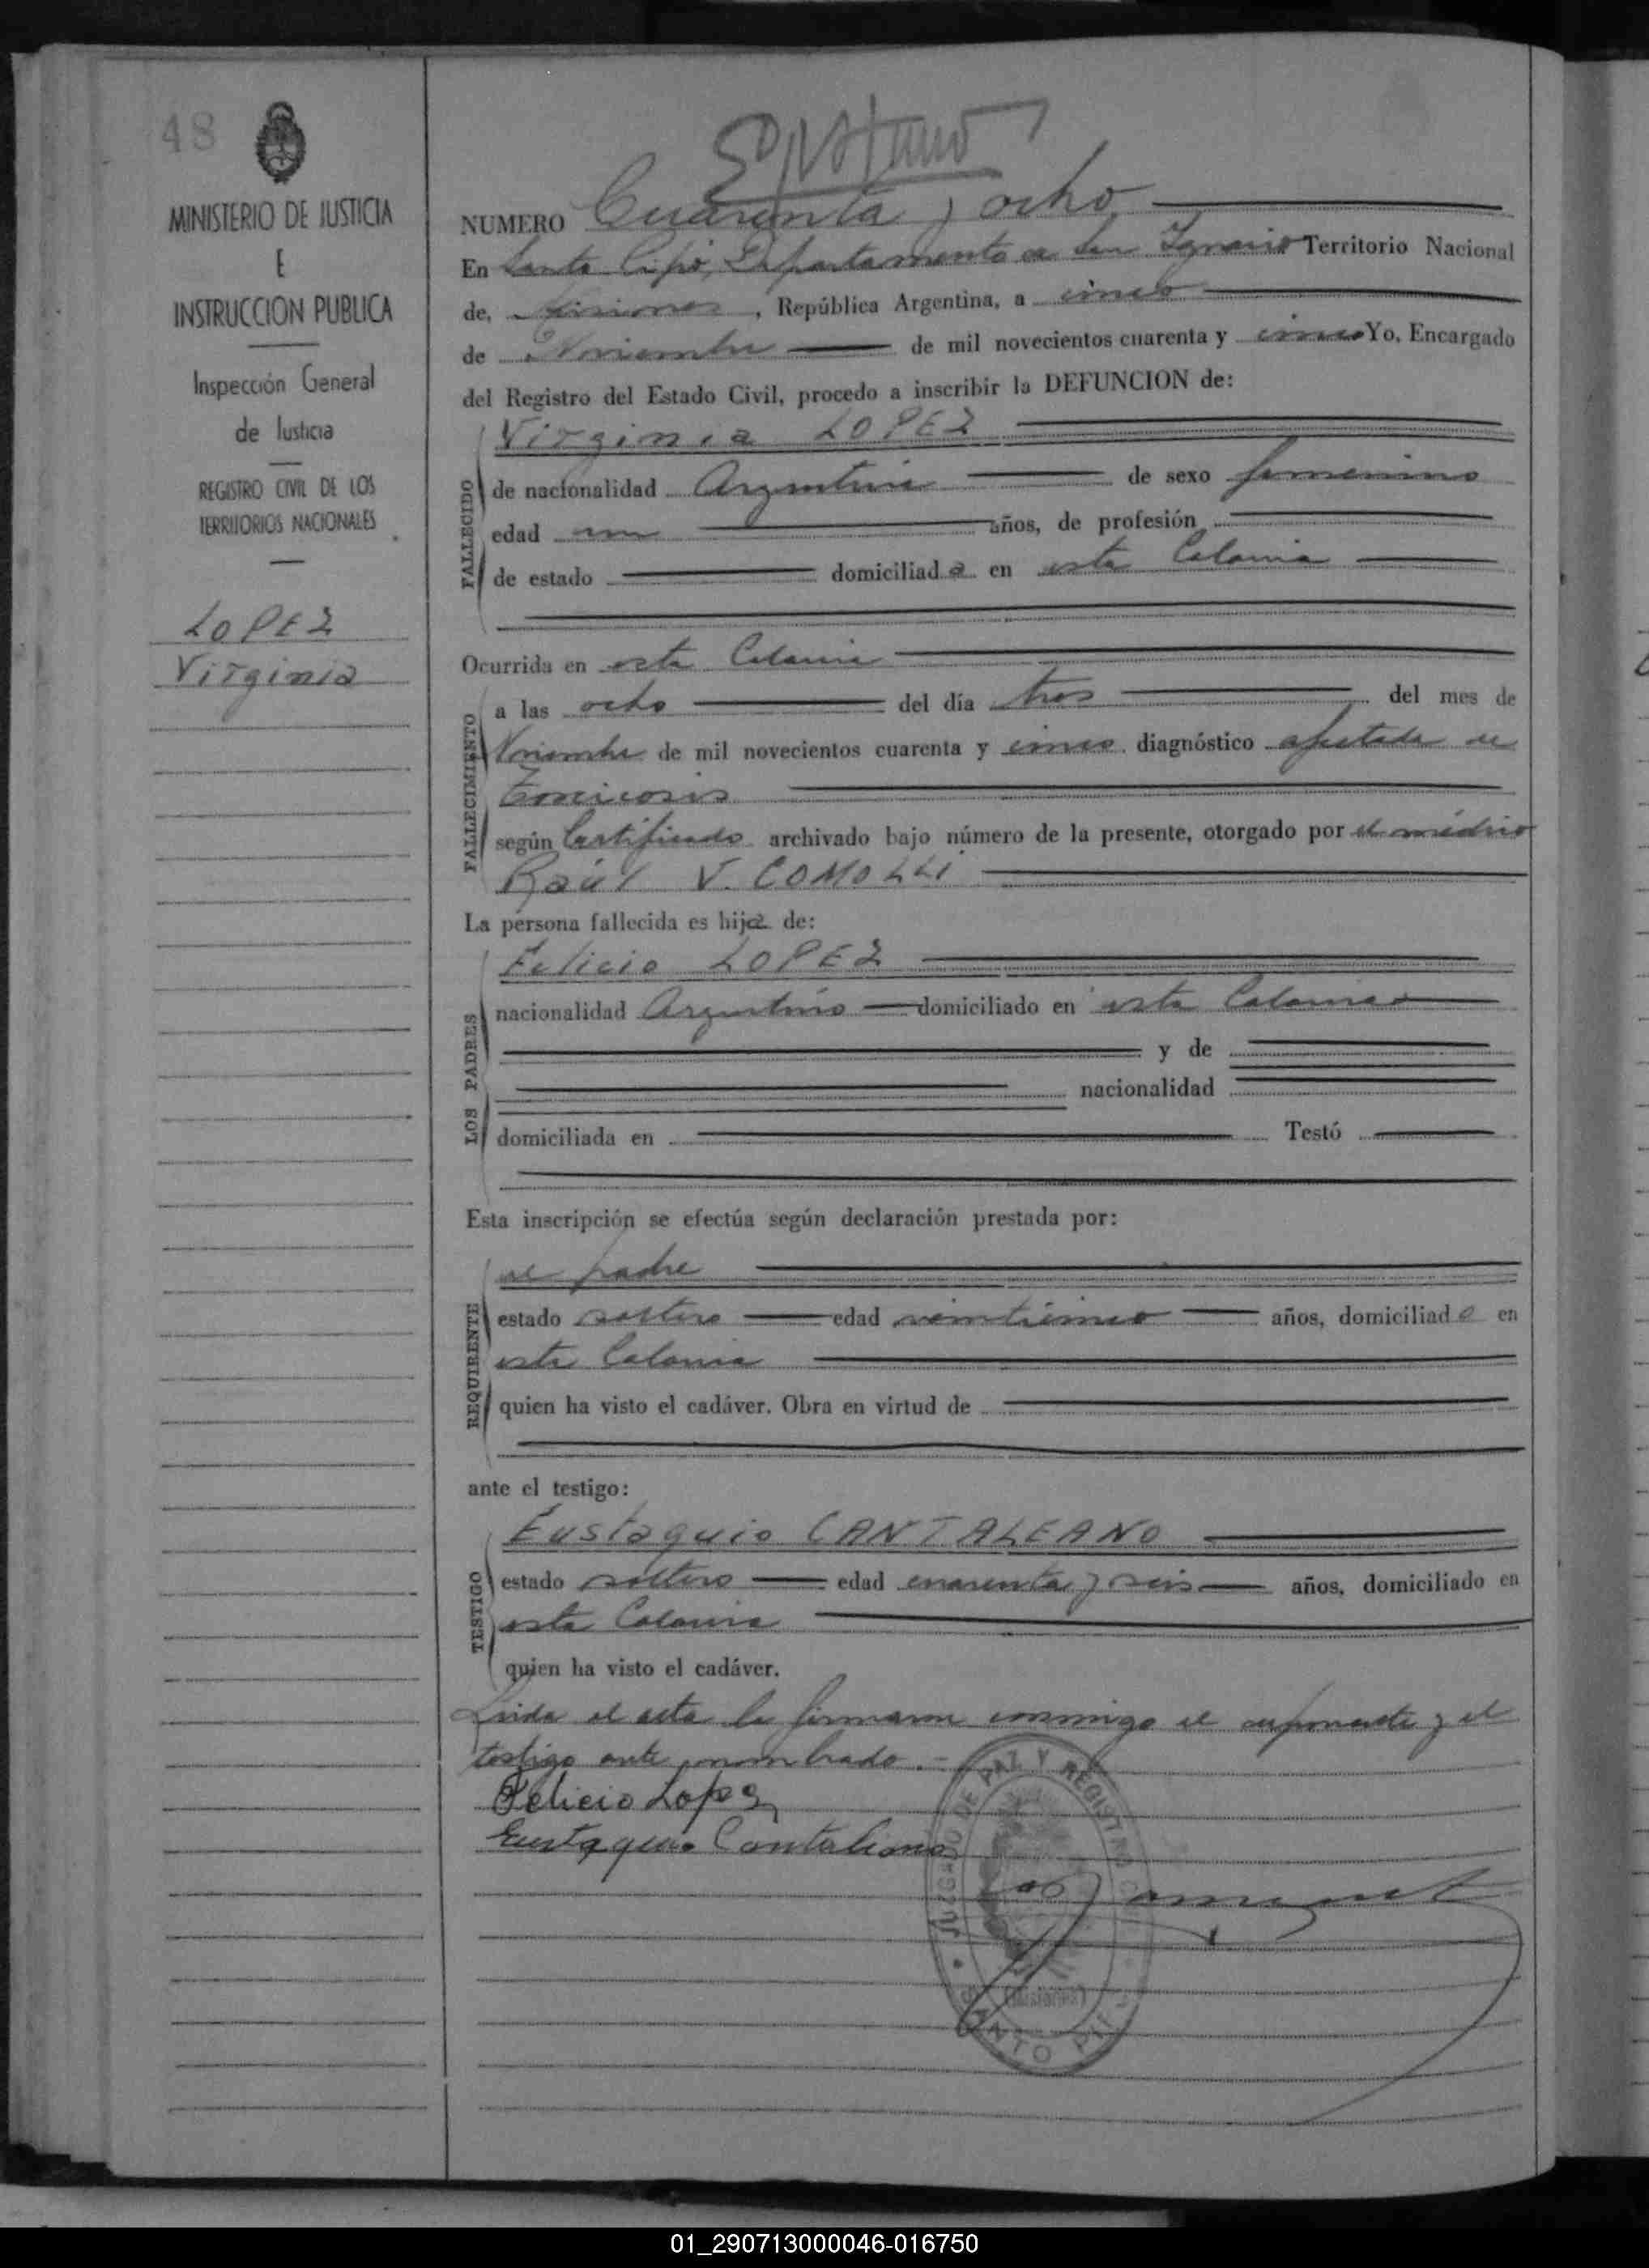 48
MINISTERIO DE JUSTICIA
E
INSTRUCCION PUBLICA
Inspección General
de Justicia
REGISTRO CIVIL DE LOS
TERRITORIOS NACIONALES
LOPEZ
Virginia
NUMERO Cuarenta y ocho
En Santo Pipó, Departamento de San Ignacio Territorio Nacional
de, Misiones, República Argentina, a cinco
de Noviembre de mil novecientos cuarenta y cinco Yo, Encargado
del Registro del Estado Civil, procedo a inscribir la DEFUNCION de:
FALLECIDO
Virginia LOPEZ
de nacionalidad Argentina de sexo femenino
edad un años, de profesión
de estado domiciliada en esta Colonia
Ocurrida en esta Colonia
FALLECIMIENTO
a las ocho del día tres del mes de
Noviembre de mil novecientos cuarenta y cinco diagnóstico afectada de
según Certificado archivado bajo número de la presente, otorgado por el médico
Raúl V. COMOLLI
La persona fallecida es hija de:
LOS PADRES
Felicio LOPEZ
nacionalidad Argentino domiciliado en esta Colonia
y de
nacionalidad
domiciliada en Testó
Esta inscripción se efectúa según declaración prestada por:
REQUIRENTE
el padre
estado soltero edad veinticinco años, domiciliado en
esta Colonia
quien ha visto el cadáver. Obra en virtud de
ante el testigo:
TESTIGO
Eustaquio CANTALEANO
estado soltero edad cuarenta y seis años, domiciliado en
esta Colonia
quien ha visto el cadáver.
Leida el acta la firmaron conmigo el exponente y el
testigo ante nombrado.-
Felicio Lopez
Eustaquio Cantaleano
JUZGADO DE PAZ Y REGISTRO C
(Misiones)
SANTO PIPO
01_290713000046-016750